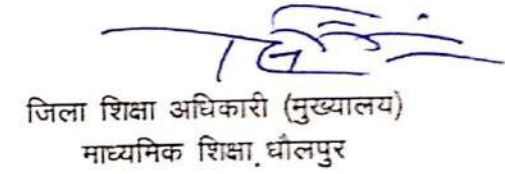 जिला शिक्षा अधिकारी (मुख्यालय)
माध्यमिक शिक्षा, धौलपुर